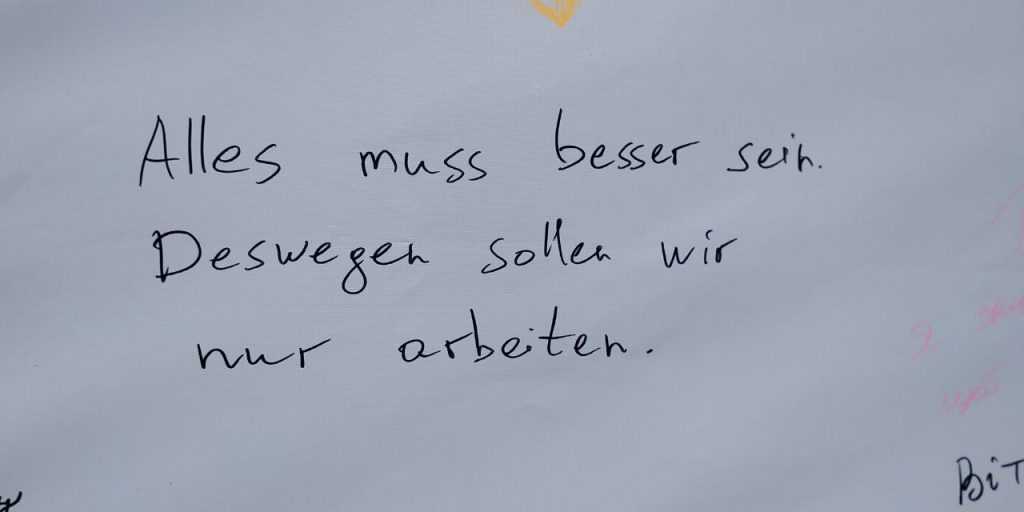 Alles muss besser sein.
Deswegen sollen wir
nur arbeiten.